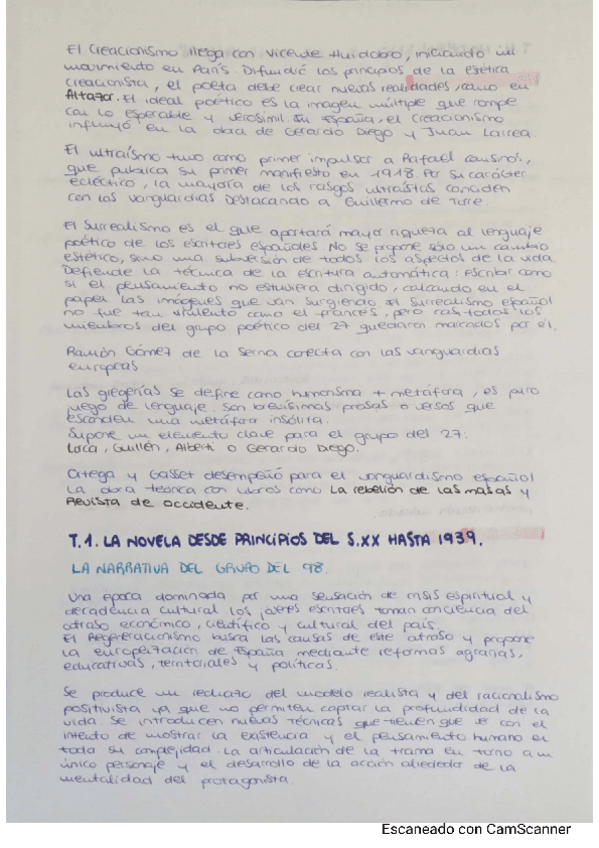 El Creacionismo llega con Vicente Huidobro, iniciando un
movimiento en París. Difundió los principios de la estética
creacionista, el poeta debe crear nuevas realidades, como en
Altazor. El ideal poético es la imagen múltiple que rompe
con lo esperable y verosímil. En España, el creacionismo
influyó en la obra de Gerardo Diego y Juan Larrea.
El ultraísmo tuvo como primer impulsor a Rafael Cansinos,
que publica su primer manifiesto en 1918. Por su carácter
ecléctico, la mayoría de los rasgos ultraístas coinciden
con las vanguardias destacando a Guillermo de Torre.
El Surrealismo es el que aportará mayor riqueza al lenguaje
poético de los escritores españoles. No se propone sólo un cambio
estético, sino una subversión de todos los aspectos de la vida.
Defiende la técnica de la escritura automática: escribir como
si el pensamiento no estuviera dirigido, calcando en el
papel las imágenes que van surgiendo. El Surrealismo español
no fue tan violento como el francés, pero casi todos los
miembros del grupo poético del 27 quedaron marcados por él.
Ramón Gómez de la Serna conecta con las vanguardias
europeas
Las greguerías se define como humorismo + metáfora, es puro
juego de lenguaje. Son brevísimas prosas o versos que
esconden una metáfora insólita.
Supone un elemento clave para el grupo del 27:
Lorca, Guillén, Alberti o Gerardo Diego.
Ortega y Gasset desempeñó para el vanguardismo español
la obra teórica con libros como La rebelión de las masas y
Revista de occidente.
T.1. LA NOVELA DESDE PRINCIPIOS DEL S.XX HASTA 1939.
LA NARRATIVA DEL GRUPO DEL 98.
Una época dominada por una sensación de crisis espiritual y
decadencia cultural los jóvenes escritores toman conciencia del
atraso económico, científico y cultural del país.
El Regeneracionismo busca las causas de este atraso y propone
la europeización de España mediante reformas agrarias,
educativas, territoriales y políticas.
Se produce un rechazo del modelo realista y del racionalismo
positivista ya que no permiten captar la profundidad de la
vida. Se introducen nuevas técnicas que tienen que ver con el
intento de mostrar la existencia y el pensamiento humano en
toda su complejidad. La articulación de la trama en torno a un
único personaje y el desarrollo de la acción alrededor de la
mentalidad del protagonista.
Escaneado con CamScanner